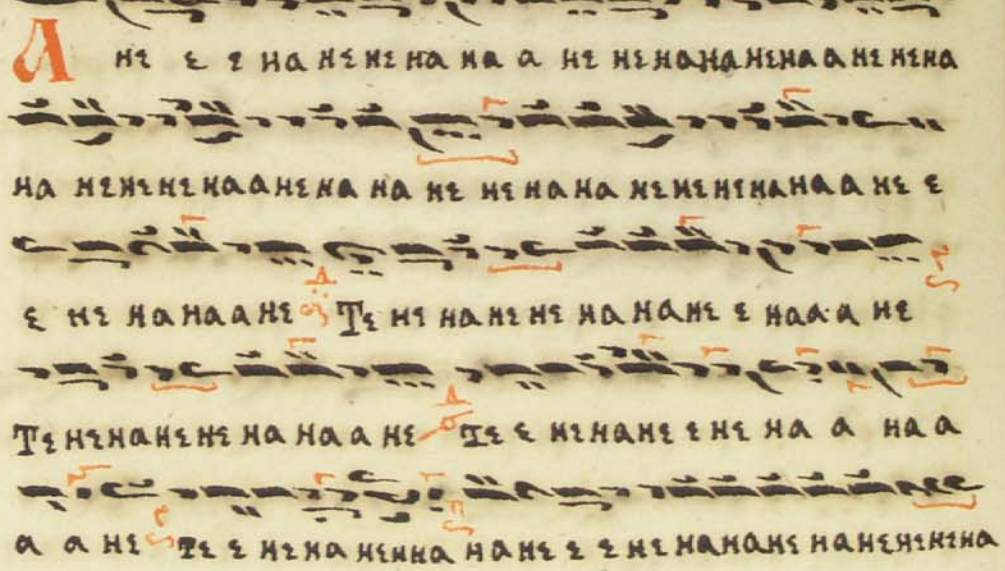 А не е е на не не на на а не не на на не на а не не на
на не не не на а не на на не не на на не не не на на а не е
е не на на а не Те не на не не на на не е на а а не
Те не на не не на на а не Те е не на не е не на а на а
а а не Те е не на не нна на не е е не на на не на не не не на